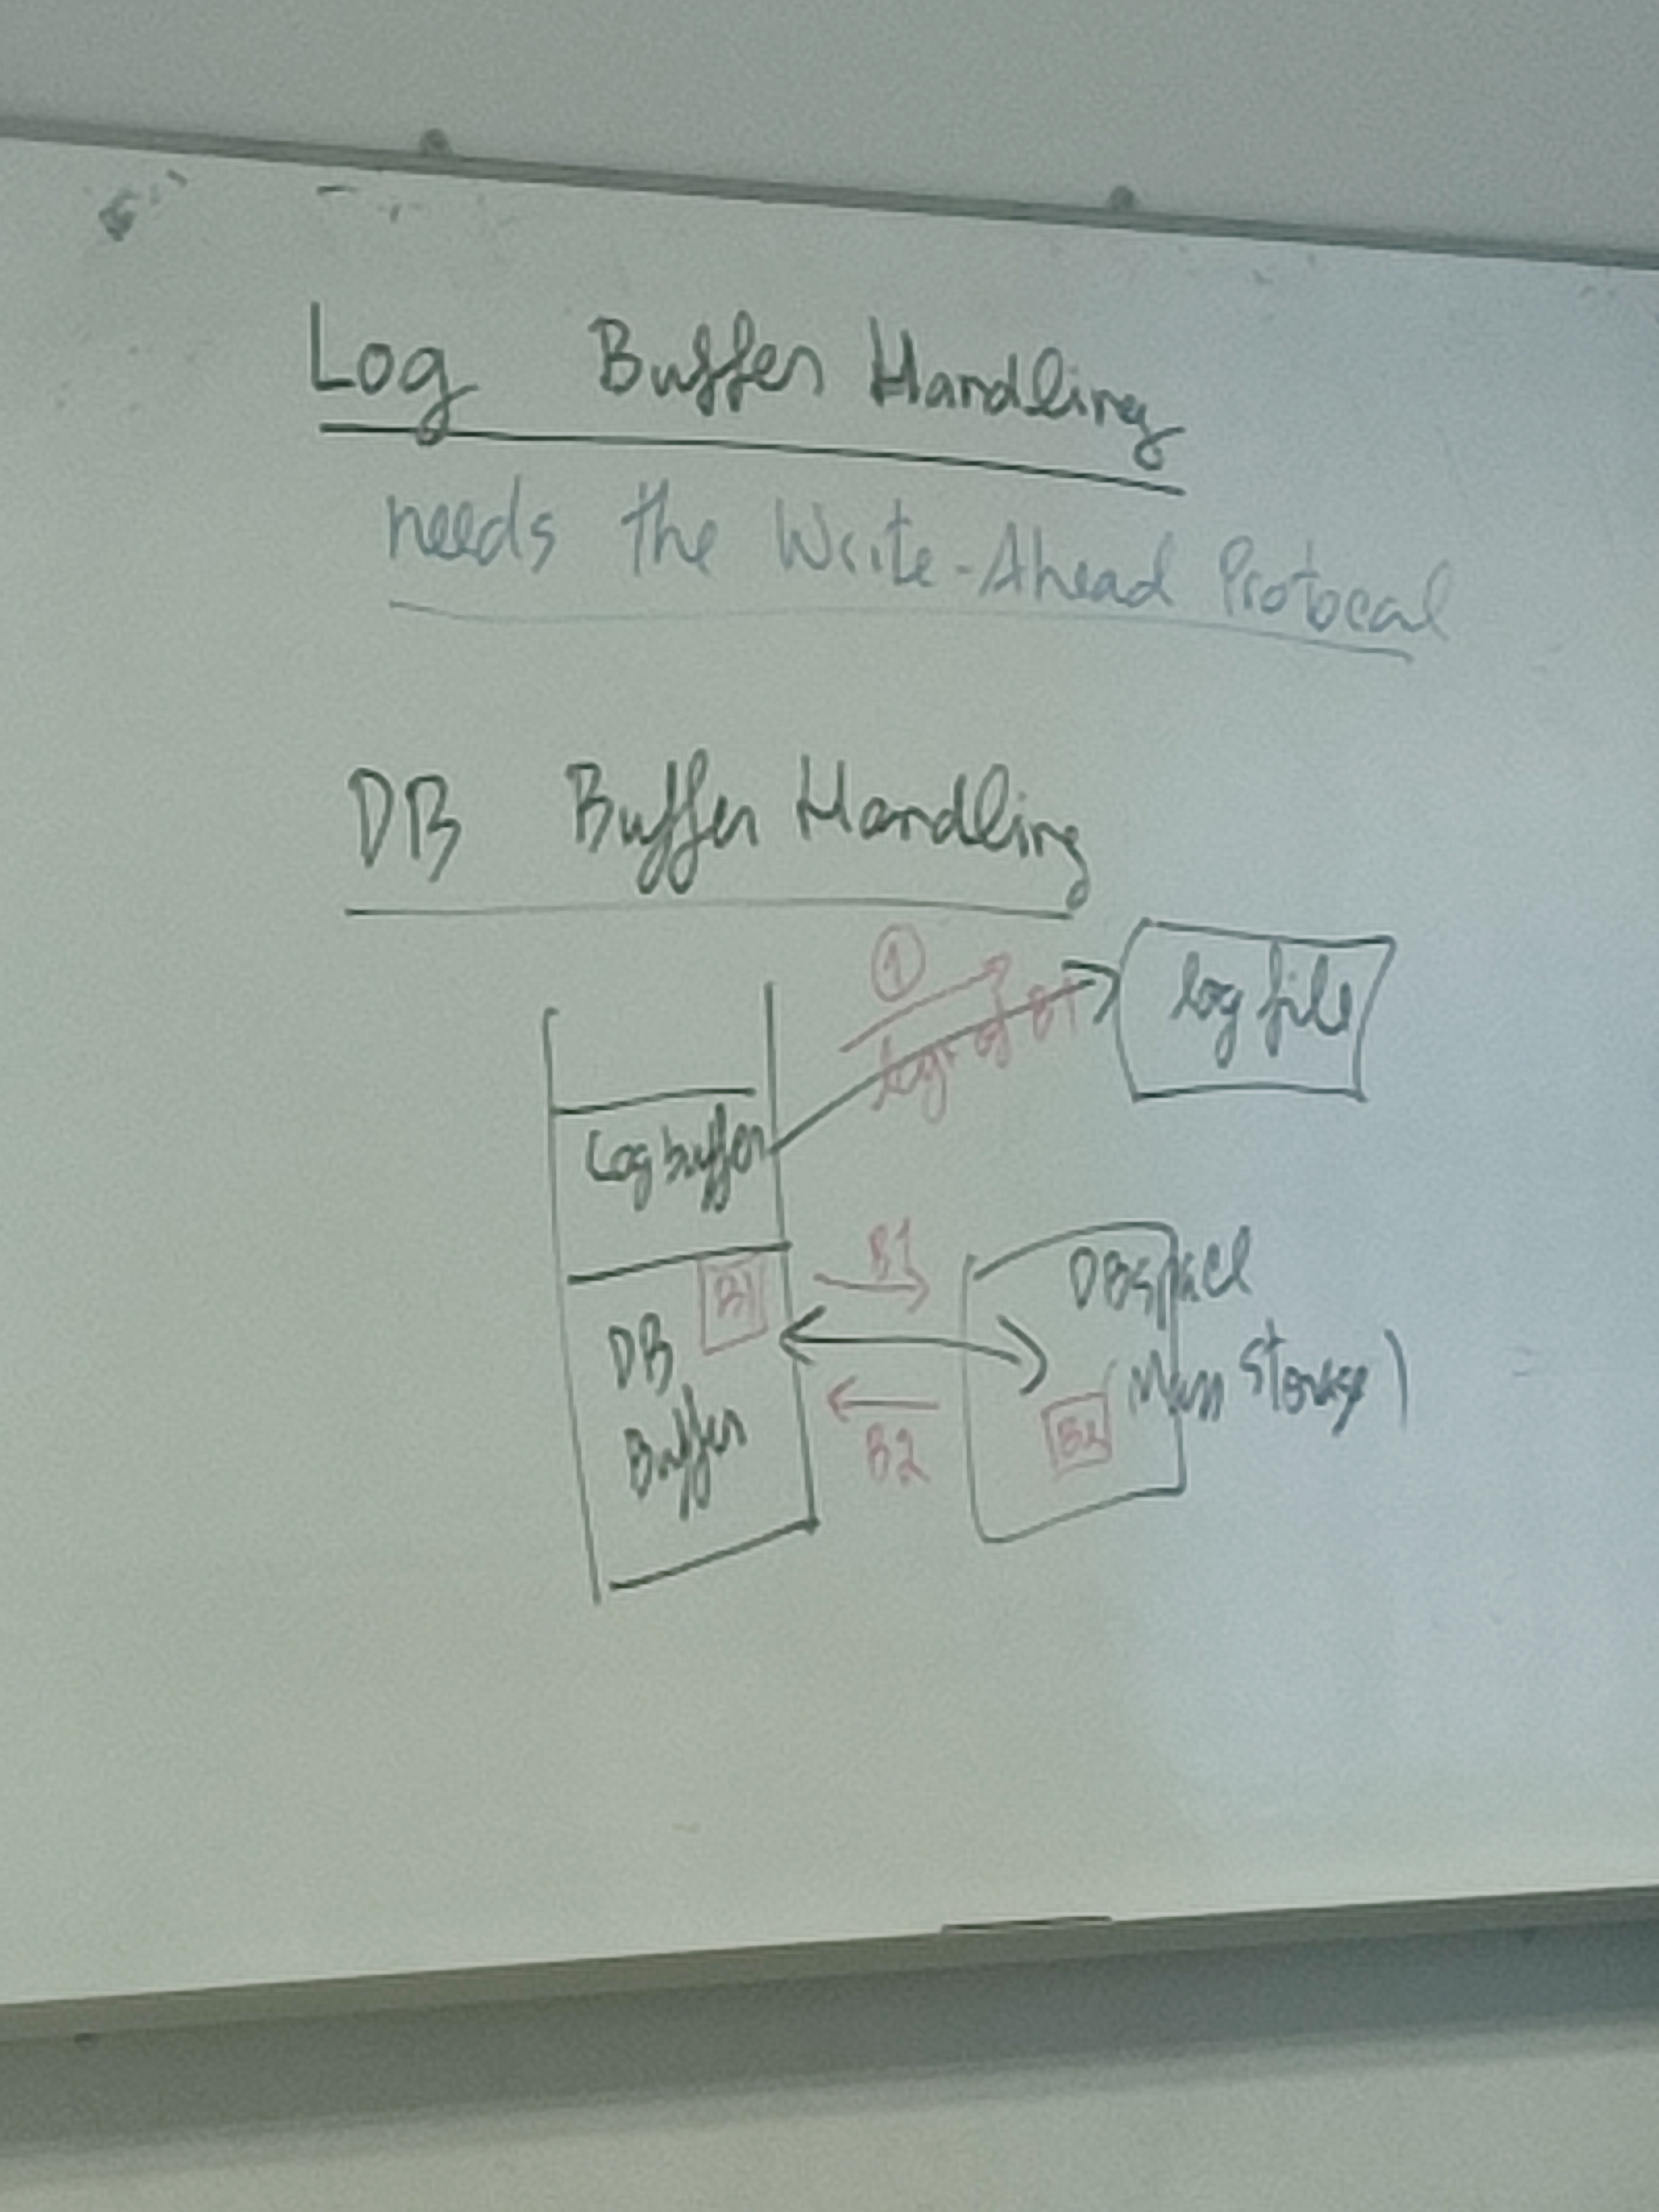 Log Buffer Handling
needs the Write-Ahead Protocal
DB Buffer Handling
1
logs of B1
log file
Log buffer
B1
B1
DBspace
DB
Buffer
(Mass Storage)
B2
B2